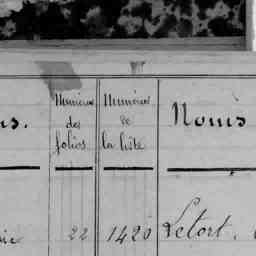 Numéros Numéros
ns. des de Noms
folios la liste
22 1420 Letort